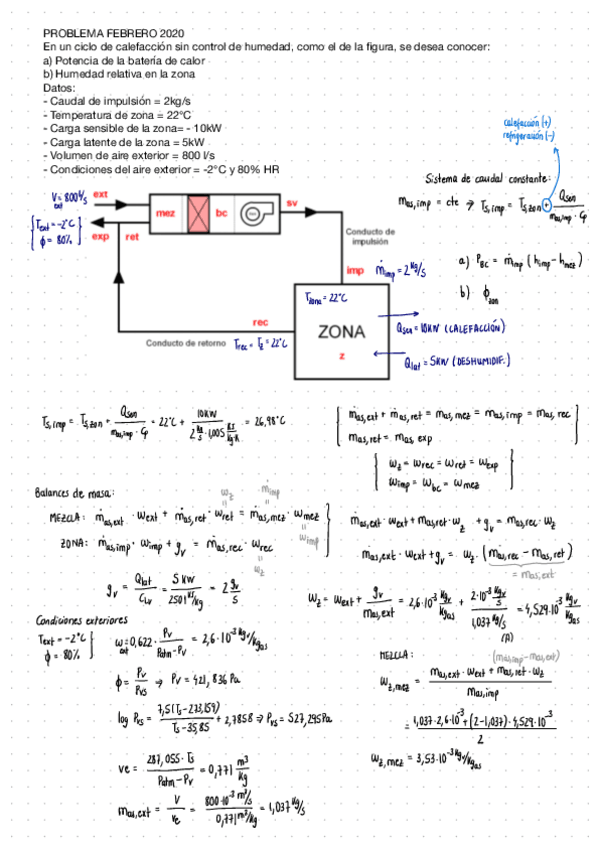 PROBLEMA FEBRERO 2020
En un ciclo de calefacción sin control de humedad, como el de la figura, se desea conocer:
a) Potencia de la batería de calor
b) Humedad relativa en la zona
Datos:
- Caudal de impulsión = 2kg/s
- Temperatura de zona = 22°C
- Carga sensible de la zona= - 10kW
- Carga latente de la zona = 5kW
- Volumen de aire exterior = 800 l/s
- Condiciones del aire exterior = -2°C y 80% HR
calefacción (+)
refrigeración (-)
Sistema de caudal constante:
mas,imp = cte → Ts,imp = Ts,zon + Qsen / mas,imp · Cp
V̇ext = 800 l/s
ext
mez
bc
sv
Text = -2°C
ϕ = 80%
exp
ret
Conducto de
impulsión
imp
ṁimp = 2 kg/s
a) PBC = ṁimp (himp - hmez)
b) ϕzon
Tzona = 22°C
ZONA
z
rec
Conducto de retorno
Trec = Tz = 22°C
Qsen = 10KW (CALEFACCIÓN)
Qlat = 5KW (DESHUMIDIF.)
Ts,imp = Ts,zon + Qsen / mas,imp · Cp = 22°C + 10KW / 2 kg/s · 1,005 KJ/kg·K = 26,98°C
ṁas,ext + ṁas,ret = mas,mez = mas,imp = mas,rec
mas,ret = mas,exp
wz = wrec = wret = wexp
wimp = wbc = wmez
Balances de masa:
wz
ṁimp
MEZCLA: ṁas,ext · wext + ṁas,ret · wret = ṁas,mez · wmez
wimp
ZONA: ṁas,imp · wimp + gv = ṁas,rec · wrec
wz
ṁas,ext · wext + mas,ret · wz + gv = mas,rec · wz
mas,ext · wext + gv = wz · (mas,rec - mas,ret)
= mas,ext
gv = Qlat / CLv = 5KW / 2501 KJ/kg = 2 gv/s
wz = wext + gv / mas,ext = 2,6·10⁻³ kgv/kgas + 2·10⁻³ kgv/s / 1,037 kg/s = 4,529·10⁻³ kgv/kgas
(A)
Condiciones exteriores
Text = -2°C
ϕ = 80%
wext = 0,622 · Pv / Patm - Pv = 2,6·10⁻³ kgv/kgas
ϕ = Pv / Pvs → Pv = 421,836 Pa
log Pvs = 7,5(Ts - 273,159) / Ts - 35,85 + 2,7858 ⇒ Pvs = 527,295 Pa
ve = 287,055 · Ts / Patm - Pv = 0,771 m³/kg
mas,ext = V / ve = 800·10⁻³ m³/s / 0,771 m³/kg = 1,037 kg/s
MEZCLA:
(mas,imp - mas,ext)
wz,mez = mas,ext · wext + mas,ret · wz / mas,imp
= 1,037 · 2,6·10⁻³ + (2 - 1,037) · 4,529·10⁻³ / 2
wz,mez = 3,53·10⁻³ kgv/kgas